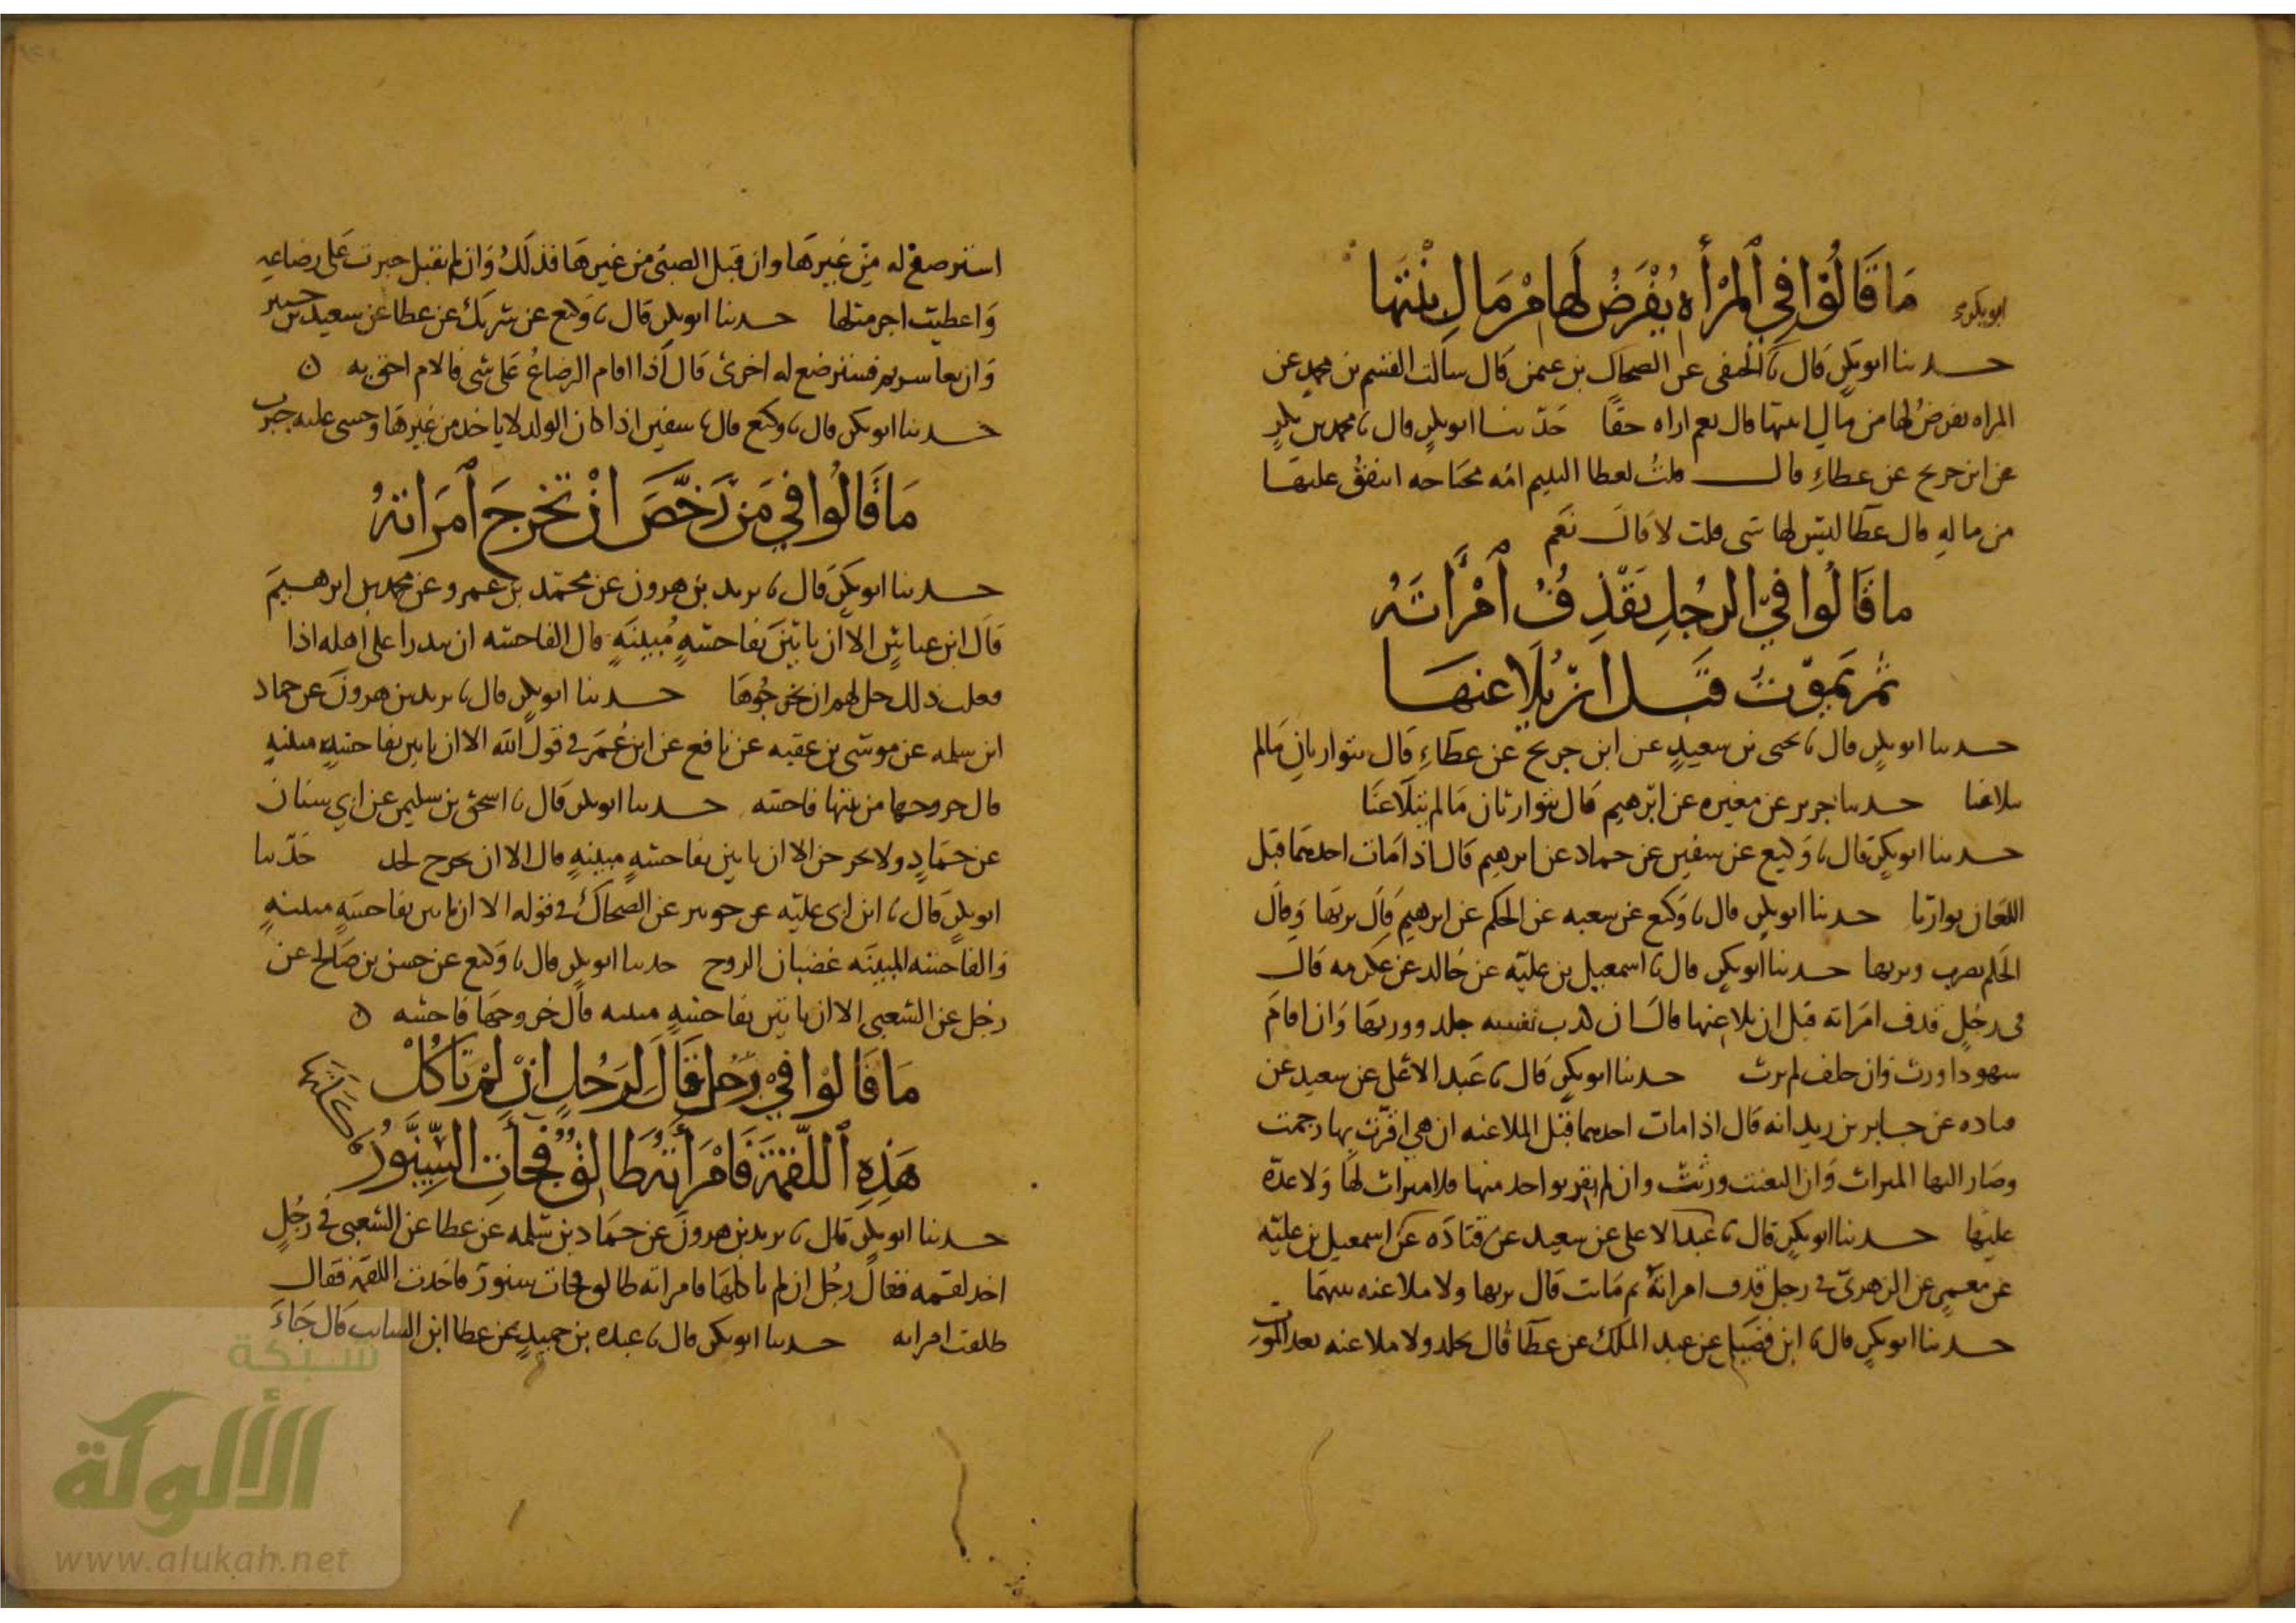 ما قالوا في المرأة يفرض لها من مال ابنتها
حدثنا ابو بكر قال نا الحنفي عن الضحاك بن عثمن قال سالت القسم بن محمد عن
المراه يفرض لها من مال ابنتها قال نعم اراه حقا حدثنا ابو بكر قال نا محمد بن بكر
عن ابن جريج عن عطاء قال قلت لعطا اليتيم امه محتاجه اينفق عليها
من ماله قال عطا ليس لها شى قلت لا قال نعم
ما قالوا في الرجل يقذف امرأته
ثم يموت قبل ان يلاعنها
حدثنا ابو بكر قال نا يحيى بن سعيد عن ابن جريج عن عطاء قال يتوارثان مالم
يتلاعنا حدثنا جرير عن مغيره عن ابرهيم قال يتوارثان مالم يتلاعنا
حدثنا ابو بكر قال نا وكيع عن سفين عن حماد عن ابرهيم قال اذا مات احدهما قبل
اللعان توارثا حدثنا ابو بكر قال نا وكيع عن شعبه عن الحكم عن ابرهيم قال يرثها وقال
الحكم يضرب ويرثها حدثنا ابو بكر قال نا اسمعيل بن عليه عن خالد عن عكرمه قال
فى رجل قذف امراته قبل ان يلاعنها قال ان اكذب نفسه جلد وورثها وان اقام
شهودا ورث وان حلف لم يرث حدثنا ابو بكر قال نا عبد الاعلى عن سعيد عن
قتاده عن جابر بن زيد انه قال اذا مات احدهما قبل الملاعنه ان هي اقرت بها رجمت
وصار اليها الميراث وان التعنت ورثت وان لم تقر بواحد منها فلا ميراث لها ولا عدة
عليها حدثنا ابو بكر قال نا عبد الاعلى عن سعيد عن قتاده عن اسمعيل بن عليه
عن معمر عن الزهرى فى رجل قذف امراته ثم ماتت قال يرثها ولا ملاعنه بينهما
حدثنا ابو بكر قال نا ابن فضيل عن عبد الملك عن عطا قال يجلد ولا ملاعنه بعد الموت
استرضع له من غيرها وان قبل الصبى من غيرها فذلك وان لم يقبل جبرت على رضاعه
واعطيت اجر مثلها حدثنا ابو بكر قال نا وكيع عن شريك عن عطا عن سعيد بن جبير
وان تعاسرتم فسترضع له اخرى قال اذا اقام الرضاع على شى فالام احق به
حدثنا ابو بكر قال نا وكيع قال نا سفين اذا كان الولد لا ياخذ من غيرها وخشى عليه جبرت
ما قالوا في من رخص ان تخرج امراته
حدثنا ابو بكر قال نا يزيد بن هرون عن محمد بن عمرو عن محمد بن ابرهيم
قال ابن عباس الا ان ياتين بفاحشة مبينة قال الفاحشه ان تبذوا على اهله اذا
فعلت ذلك حل لهم ان يخرجوها حدثنا ابو بكر قال نا يزيد بن هرون عن حماد
ابن سلمه عن موسى بن عقبه عن نافع عن ابن عمر فى قول الله الا ان ياتين بفاحشة مبينة
قال خروجها من بيتها فاحشه حدثنا ابو بكر قال نا اسحق بن سليمن عن ابي سنان
عن حماد ولا يخرجن الا ان ياتين بفاحشة مبينة قال الا ان تخرج لحد حدثنا
ابو بكر قال نا ابن ابي عليه عن جويبر عن الضحاك فى قوله الا ان ياتين بفاحشة مبينة
والفاحشه المبينه عصيان الزوج حدثنا ابو بكر قال نا وكيع عن حسن بن صالح عن
رجل عن الشعبي الا ان ياتين بفاحشة مبينه قال خروجها فاحشه
ما قالوا في رجل قال لرجل ان لم تأكل
هذه اللقمة فامرأته طالق فجات السنور
حدثنا ابو بكر قال نا يزيد بن هرون عن حماد بن سلمه عن عطا عن الشعبى فى رجل
اخذ لقمه فقال رجل ان لم تاكلها فامراته طالق فجات سنور فاخذت اللقمة فقال
طلقت امراته حدثنا ابو بكر قال نا عبده بن حميد عن عطا ابن السايب قال جاء
شبكة
الألوكة
www.alukah.net